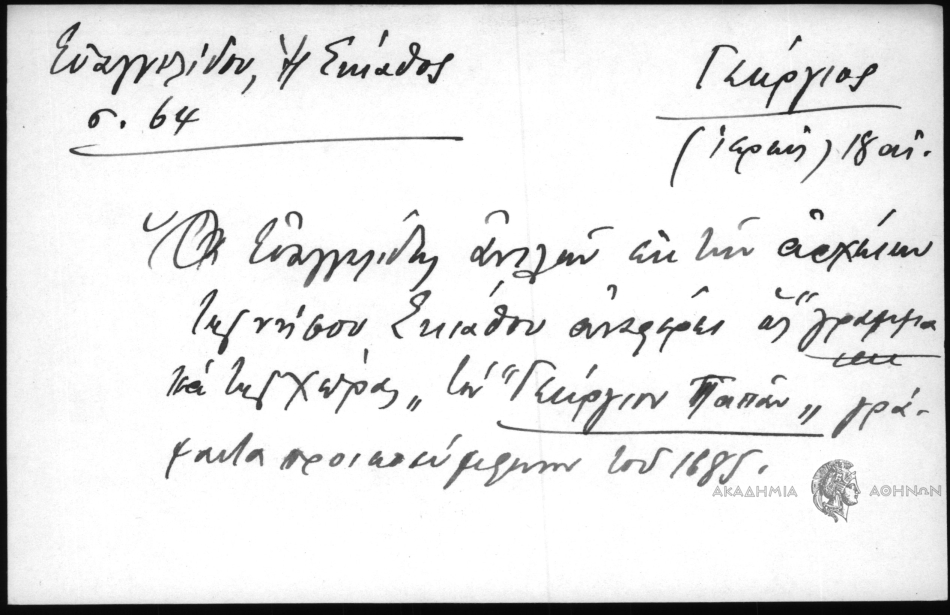 Εὐαγγελίδου, Ἡ Σκιάθος
σ. 64
Γεώργιος
(ἱερεὺς) 18 αἰ.
Ὁ Εὐαγγελίδης ἀντλῶν ἐκ τῶν ἀρχείων
τῆς νήσου Σκιάθου ἀναφέρει ὡς "γραμμα
τικὸ τῆς Χώρας„ τὸν "Γεώργιον Παπᾶν„ γρά-
ψαντα προικοσύμφωνον τοῦ
ΑΚΑΔΗΜΙΑ ΑΘΗΝΩΝ